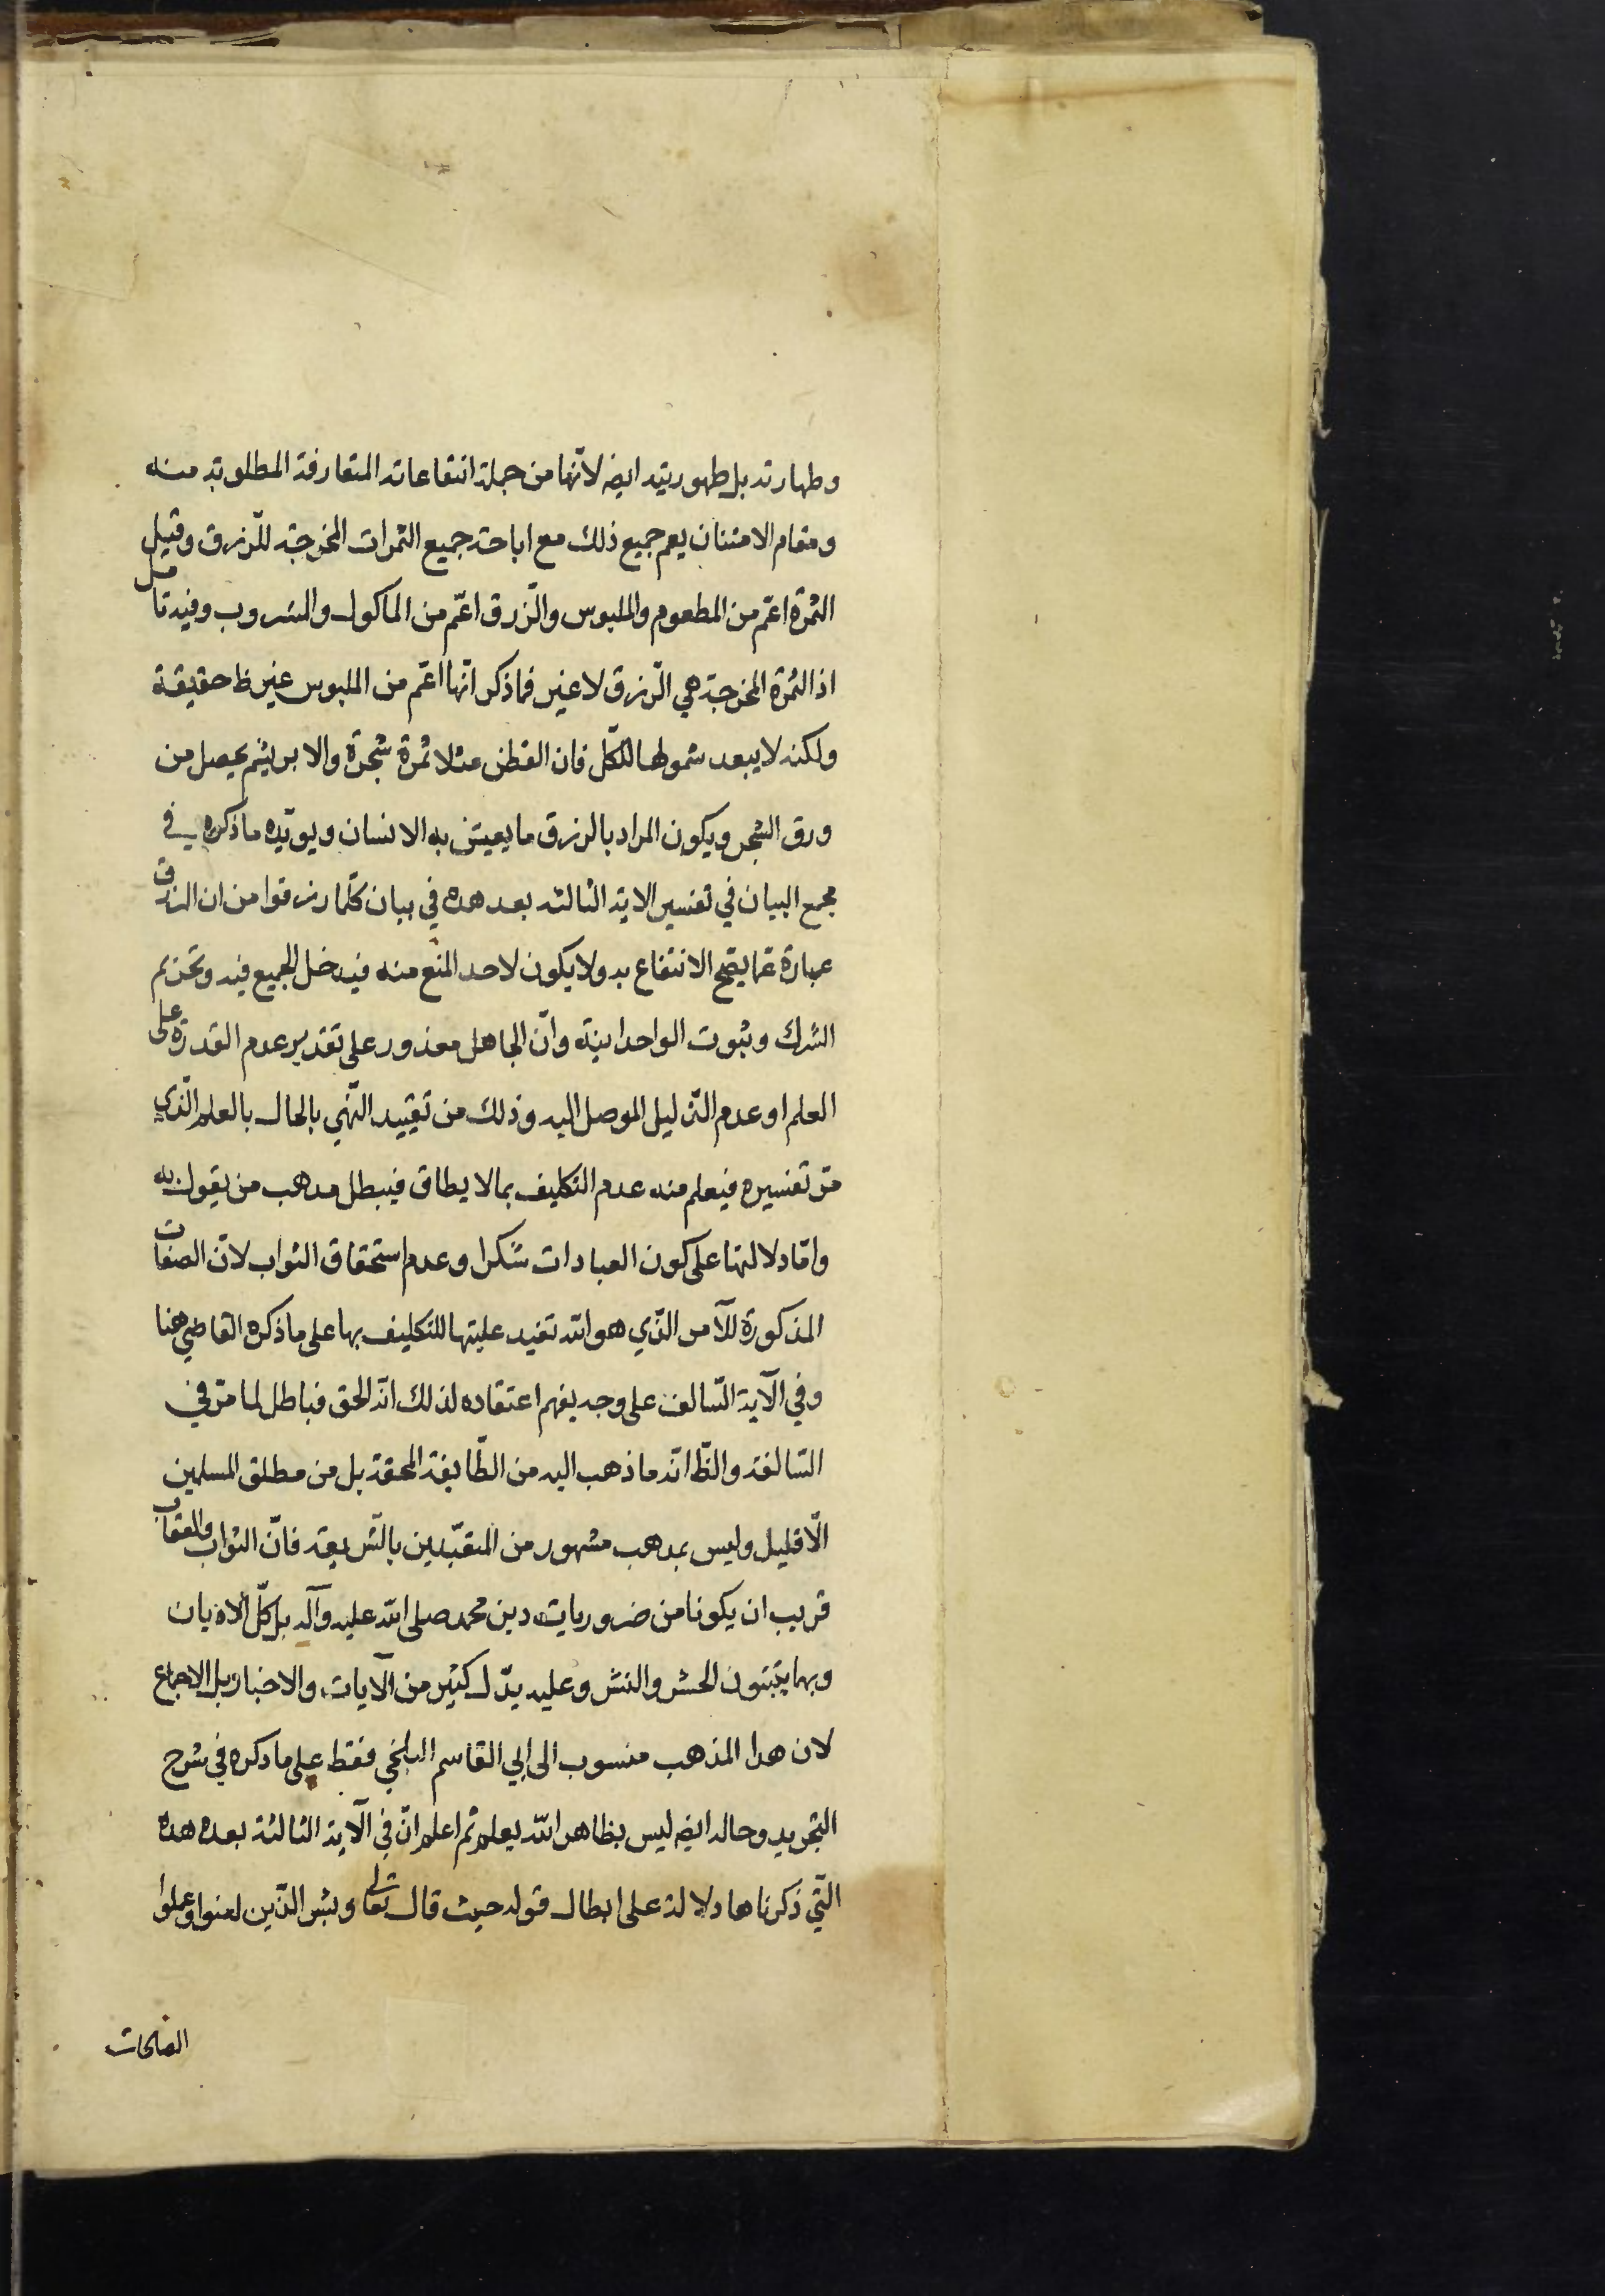 وطهارته بل طهوريته ايضه لانّها من جملة انتفاعاته المتعارفة المطلوبة منه
ومقام الامتنان يعم جميع ذلك مع اباحة جميع الثمرات المخرجة للّرزق وقيل
الثمرة اعّم من المطعوم والملبوس والّرزق اعّم من الماكول والمشروب وفيه تامل
اذ الثمرة المخرجة هي الّرزق لا غير فما ذكر انّها اعّم من الملبوس غير ظ حقيقة
ولكنه لا يبعد شمولها للكّل فان القطن مثلا ثمرة شجرة والابريشم يحصل من
ورق الشجر ويكون المراد بالرزق ما يعيش به الانسان ويويّده ما ذكره في
مجمع البيان في تفسير الاية الثالثة بعد هذه في بيان كلّما رزقوا من ان الرزق
عبارة عّما يصّح الانتفاع به ولا يكون لاحد المنع منه فيدخل الجميع فيه وتحريم
الشرك وثبوت الواحدانية وانّ الجاهل معذور على تقدير عدم القدرة على
العلم او عدم الدّليل الموصل اليه وذلك من تقييد النّهي بالحال بالعلم الّذي
مّر تفسيره فيعلم منه عدم التكليف بما لا يطاق فيبطل مذهب من يقول به
وامّا دلالتها على كون العبادات شكرا وعدم استحقاق الثواب لانّ الصفات
المذكورة للآمر الّذي هو الله تفيد عليتها للتكليف بها على ما ذكره القاضي هنا
وفي الآية السّالفة على وجه يفهم اعتقاده لذلك انّه الحق فباطل لما مّر في
السّالفة والظّ انّه ما ذهب اليه من الطّايفة المحقة بل من مطلق المسلمين
الّا قليل وليس بمذهب مشهور من المتعبّدين بالشّريعة فانّ الثواب والعقاب
قريب ان يكونا من ضروريات دين محمد صلى الله عليه وآله بل كّل الاديان
وبهما يثبتون الحشر والنشر وعليه يدّل كثير من الآيات والاخبار بل الاجماع
لان هذا المذهب منسوب الى ابي القاسم البلخي فقط على ما ذكره في شرح
التجريد وحاله ايضه ليس بظاهر الله يعلم ثم اعلم انّ في الآية الثالثة بعد هذه
الّتي ذكرناها دلالة على ابطال قوله حيث قال تعالى وبشر الّذين امنوا وعملوا
الصلحات